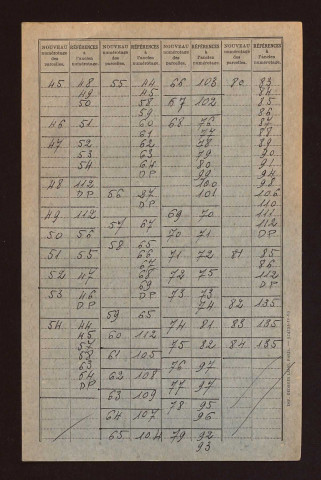 NOUVEAU numérotage des parcelles. RÉFÉRENCES à l'ancien numérotage. NOUVEAU numérotage des parcelles. RÉFÉRENCES à l'ancien numérotage. NOUVEAU numérotage des parcelles. RÉFÉRENCES à l'ancien numérotage. NOUVEAU numérotage des parcelles. RÉFÉRENCES à l'ancien numérotage.
45 48
49
50
46 51
47 52
53
54
48 112
DP
49 112
50 56
51 55
52 47
53 46
DP
54 44
45
57
58
63
64
DP
55 44
45
58
59
60
61
62
63
64
DP
56 97
DP
57 67
58 65
66
67
68
69
DP
59 65
60 112
61 105
62 108
63 109
64 107
65 104
66 103
67 102
68 76
77
78
79
80
99
100
101
69 70
70 71
71 72
72 75
73 73
74
74 81
75 82
76 97
77 97
78 95
96
79 92
93
80 83
84
85
86
87
88
89
90
91
94
98
106
110
111
112
DP
81 85
86
112
DP
82 135
83 135
84 135